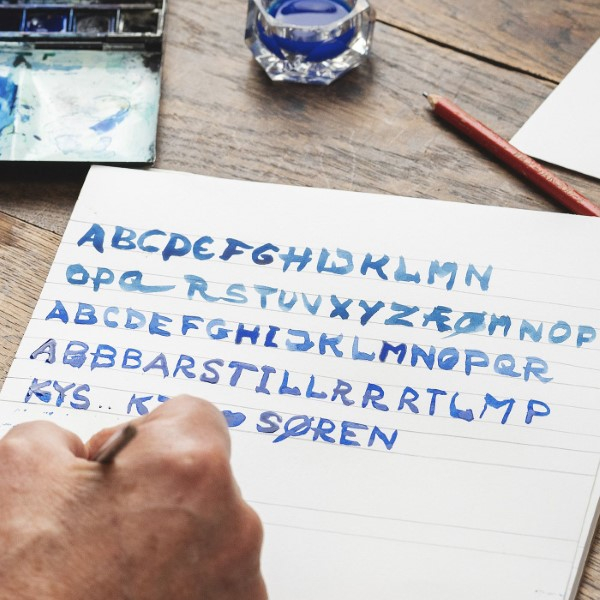 ABCDEFGHIJKLMN
OPQ RSTUVXYZÆØMNOP
ABCDEFGHIJKLMNOPQR
ABBBBARSTILLRRRRTLMP
KYS.. SØREN